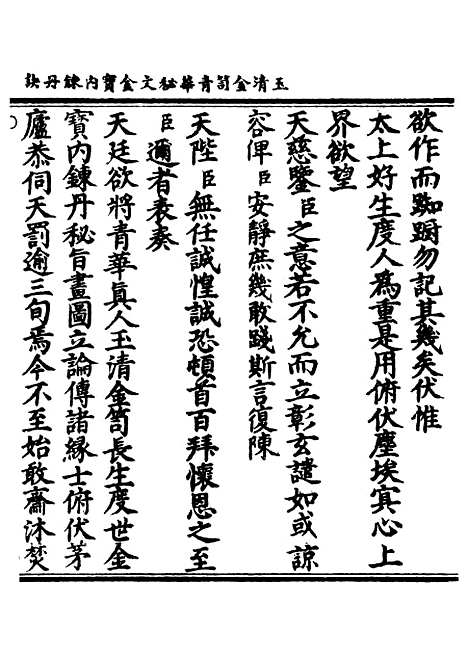 玉清金笥青華秘文金寶內鍊丹訣
欲作而踟躕勿記其幾矣伏惟
太上好生度人為重是用俯伏塵埃寘心上
界欲望
天慈鑒臣之意若不允而立彰玄譴如或諒
容俾臣安靜庶幾敢踐斯言復陳
天陛臣無任誠惶誠恐頓首百拜懷恩之至
臣邇者表奏
天廷欲將青華真人玉清金笥長生度世金
寶內鍊丹秘旨畫圖立論傳諸緣士俯伏茅
廬恭伺天罰逾三旬焉今不至始敢齋沐焚